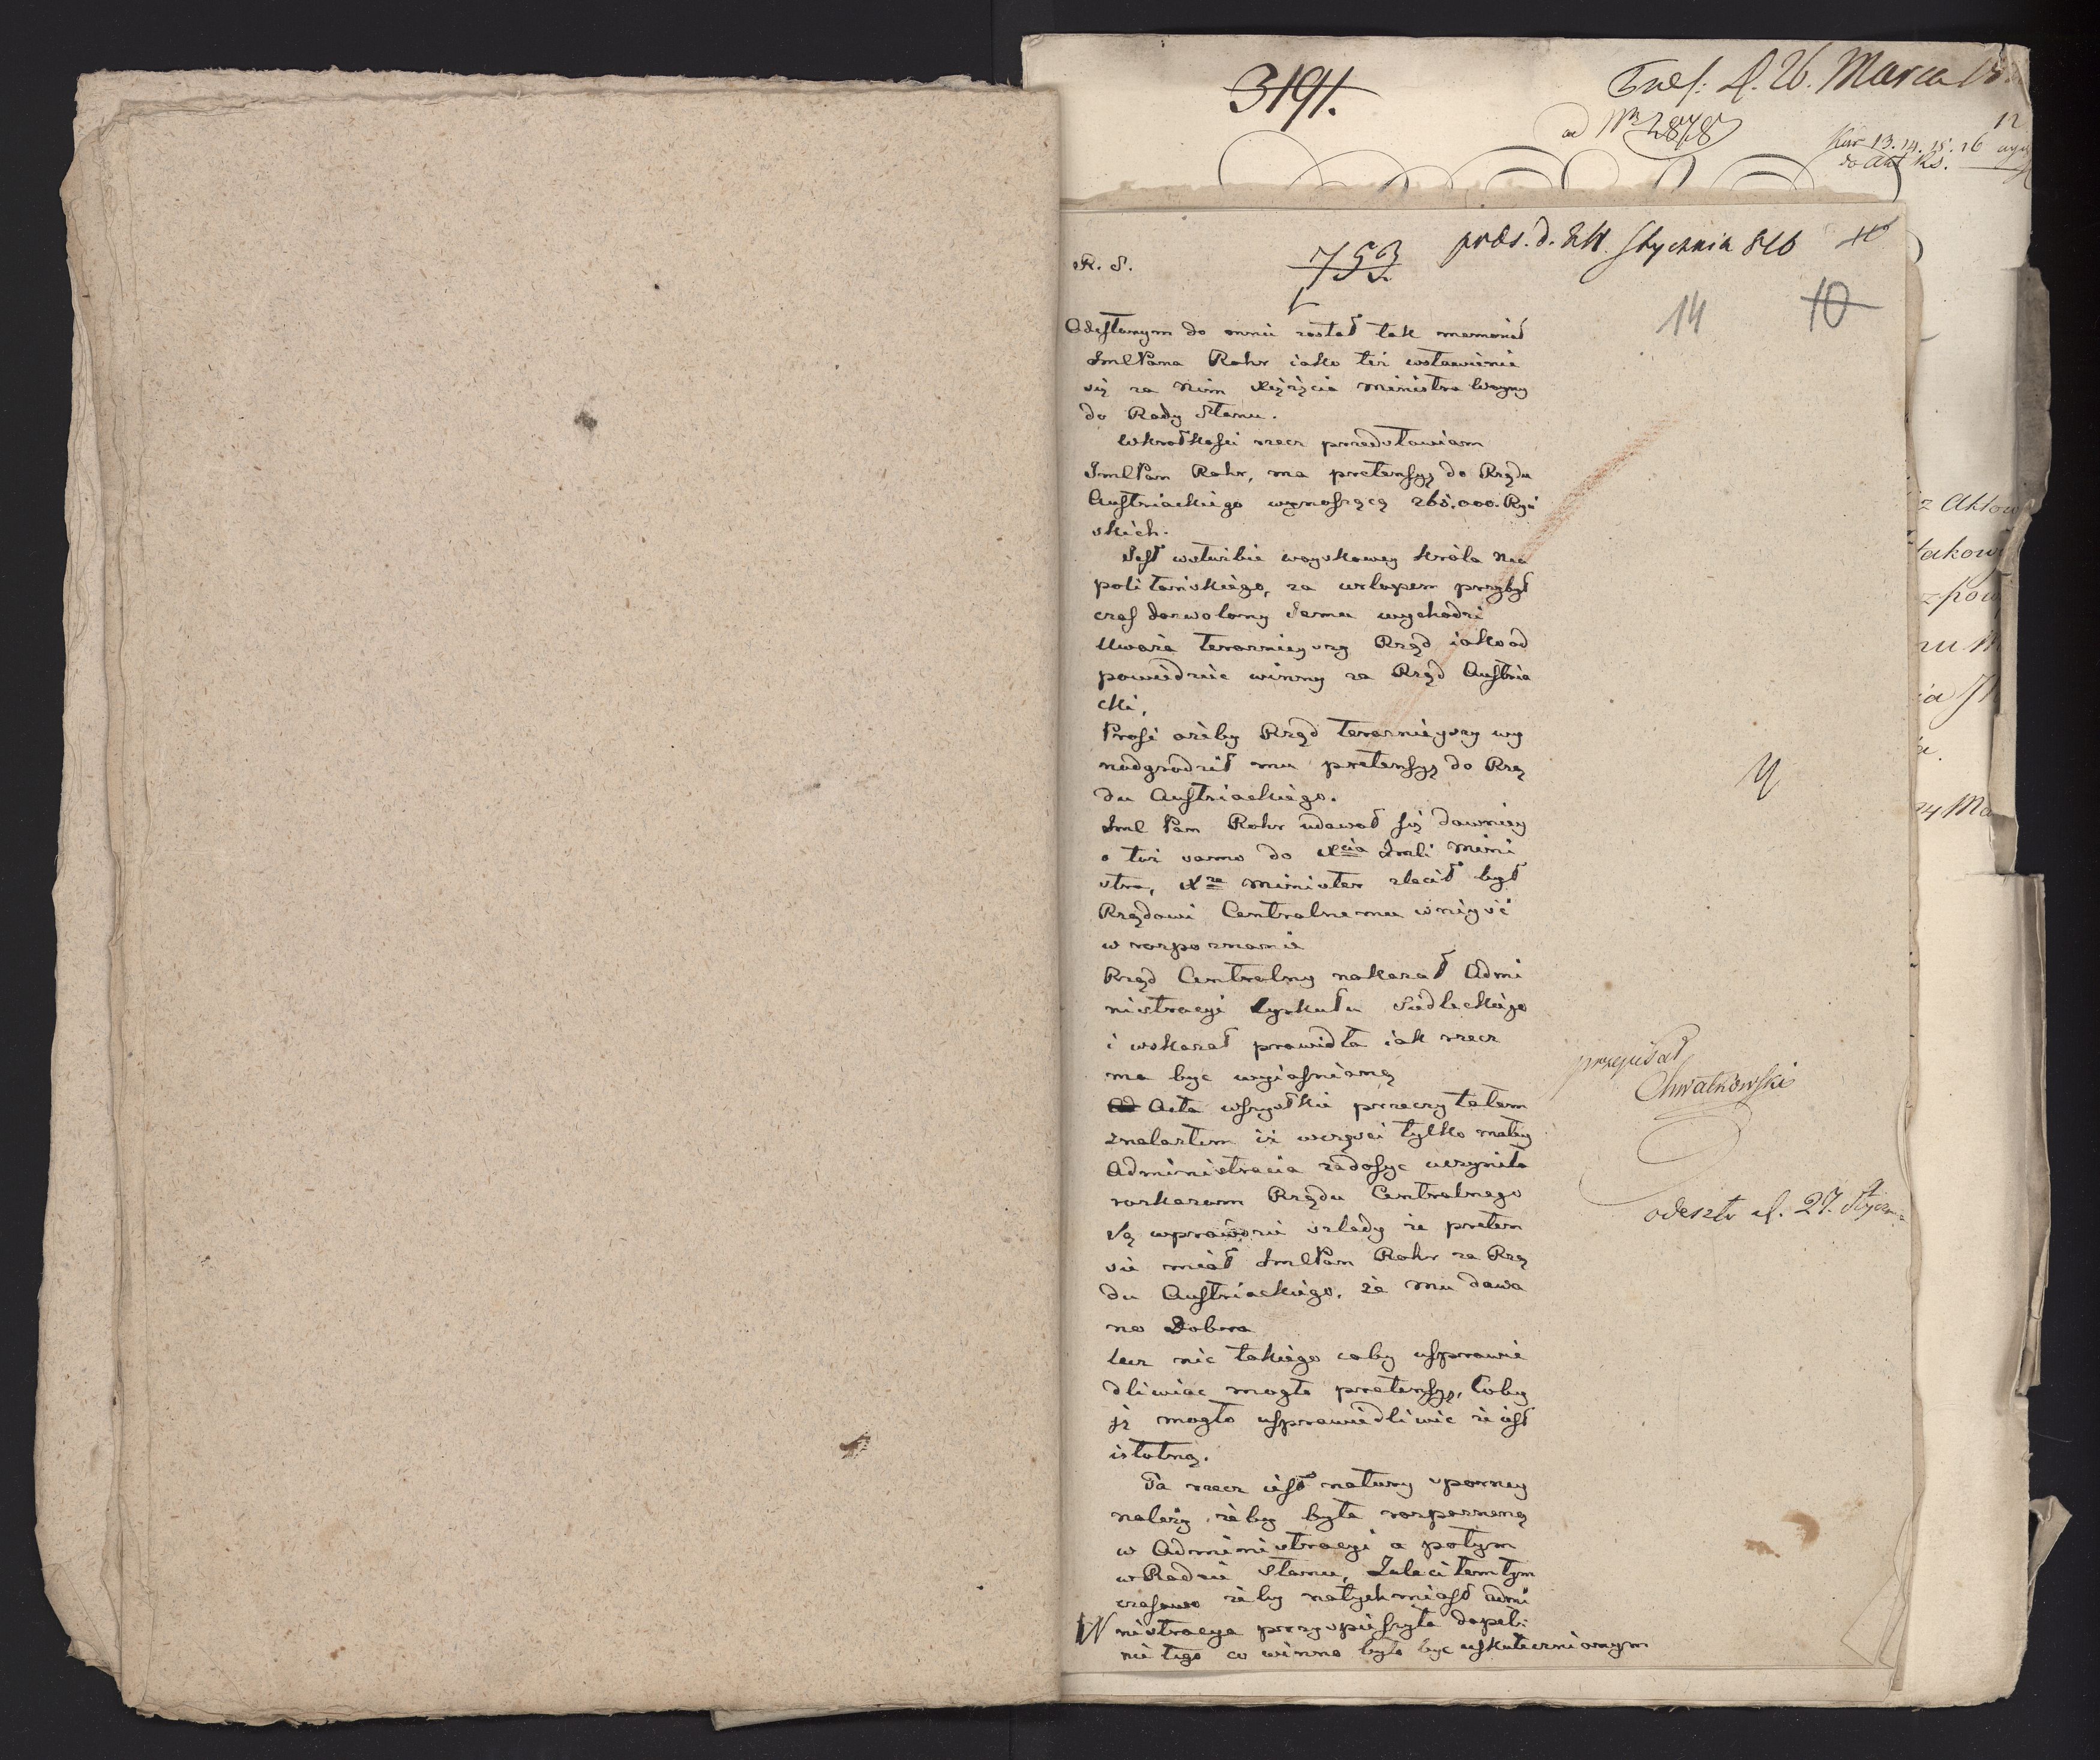 3191.
d. 26. Marca
ad Nro 2878
12
Kar 13. 14. 15. 16
do Akt Rs.
pres. d. 24. Stycznia 810
R. S.
753
14
10
Odesłanym do mnie został tak memoriał
JmlPana Rohr iako też wstawienie
się za Nim Xiężęcia Ministra Woyny
do Rady Stanu.
Wkrotkości rzecz przedstawiam
JmlPan Rohr, ma pretensyę do Rządu
Austriackiego wynoszącą 265.000. Ryń
skich.
Jest wsłużbie woyskowey Króla Nea
politańskiego, za urlopem przybył
czas dozwolony Jemu wychodzi
Uważa terazniey szy Rząd iako od
powiedzieć winny za Rząd Austria
cki,
Prosi ażeby Rząd teraznieyszy wy
nadgrodził mu pretensyę do Rzą
du Austriackiego.
Jml Pan Rohr udawał się dawniey
o toż samo do Xcia Jmli Mini
stra, Xże Minister zlecił był
Rządowi Centralnemu wniyść
w rozpoznanie
Rząd Centralny nakazał Admi
nistracyi Cyrkułu Siedleckiego
i wskazał prawidła iak rzecz
ma byc wyiasnioną
Acta wszystkie przeczytałem
znalazłem iż wczęsci tylko małey
Administracia zadosyc uczyniła
rozkazom Rządu Centralnego
Są wprawdzie szlady że preten
sie miał JmlPan Rohr za Rzą
du Austriackiego, że mu dawa
no Dobra
lecz nic takiego coby usprawie
dliwiac mogło pretensyę, coby
ją mogło usprawiedliwic że iest
istotną.
Ta rzecz iest natury sporney
należy, żeby była rozpoznaną
w Administracyi a potym
w Radzie Stanu, Zaleciłem tym
czasowo żeby natychmiast Admi
nistracya przyspieszyła dopeł-
nie tego co winno było byc uskutecznionym
przepisał
Chwalkowski
odeszło d. 27. Stycznia
z Aktow
takowi
14 Ma